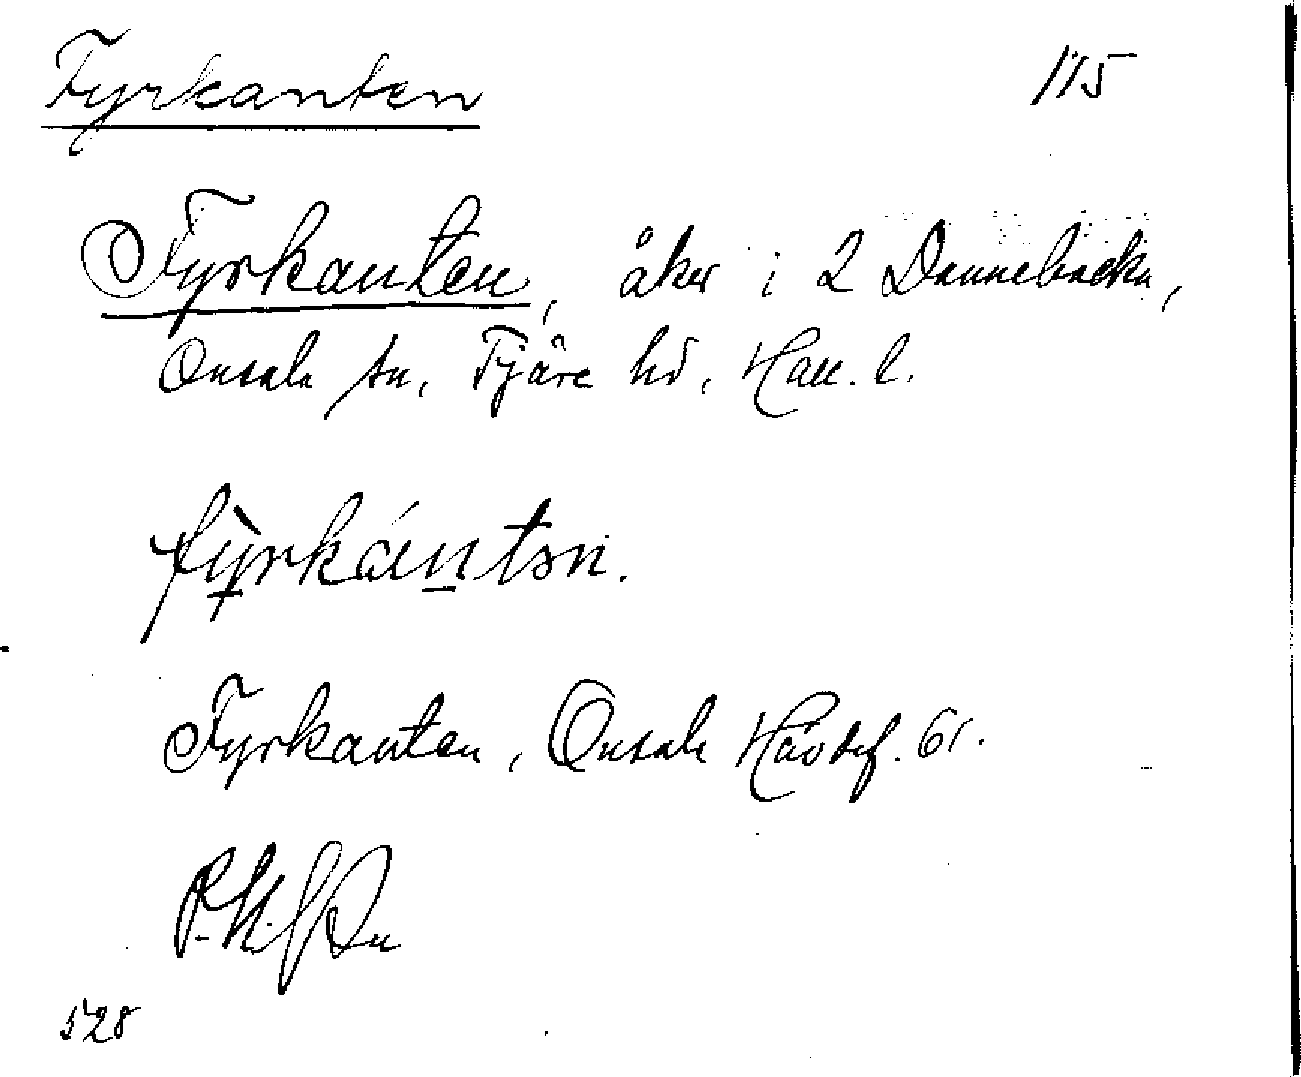 Fyrkanten 115
Fyrkanten, åker i 2 Dannebacka,
Onsala sn, Fjäre hd, Hall. l.
fỳ̱rkáṉtən.
Fyrkanten, Onsala Hävdef. 61.
528